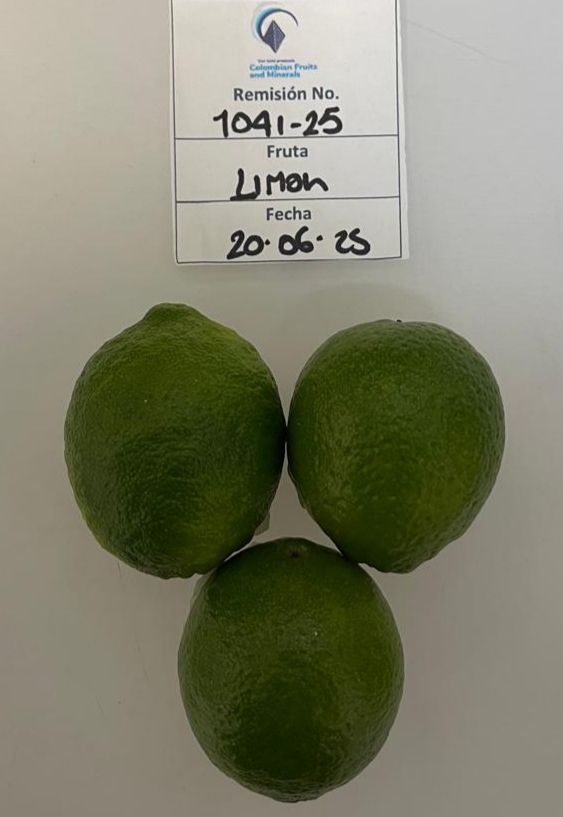 Colombian Fruits
and Minerals
Remisión No.
1041-25
Fruta
Limon
Fecha
20·06·25